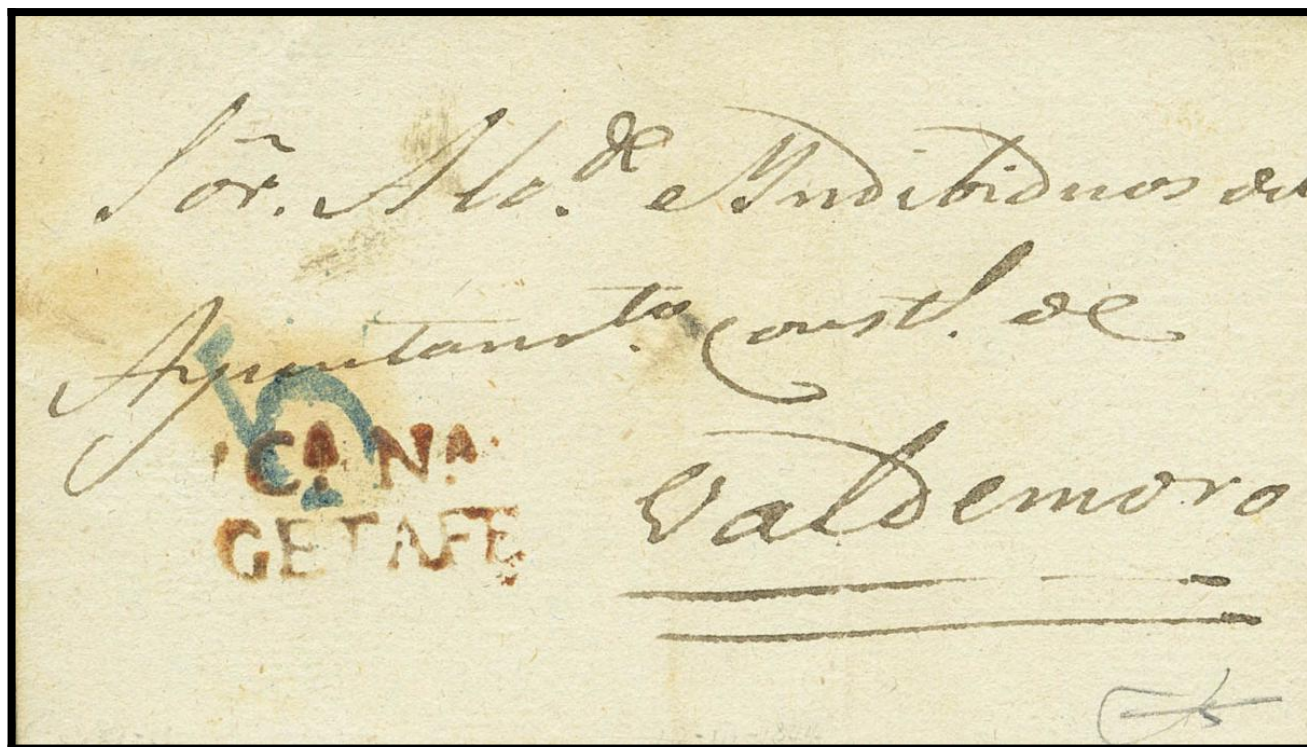 Sõr. Alc.de e Yndibiduos del
Ayuntam.to Const.l de
Valdemoro
5
C N.A
GETAFE